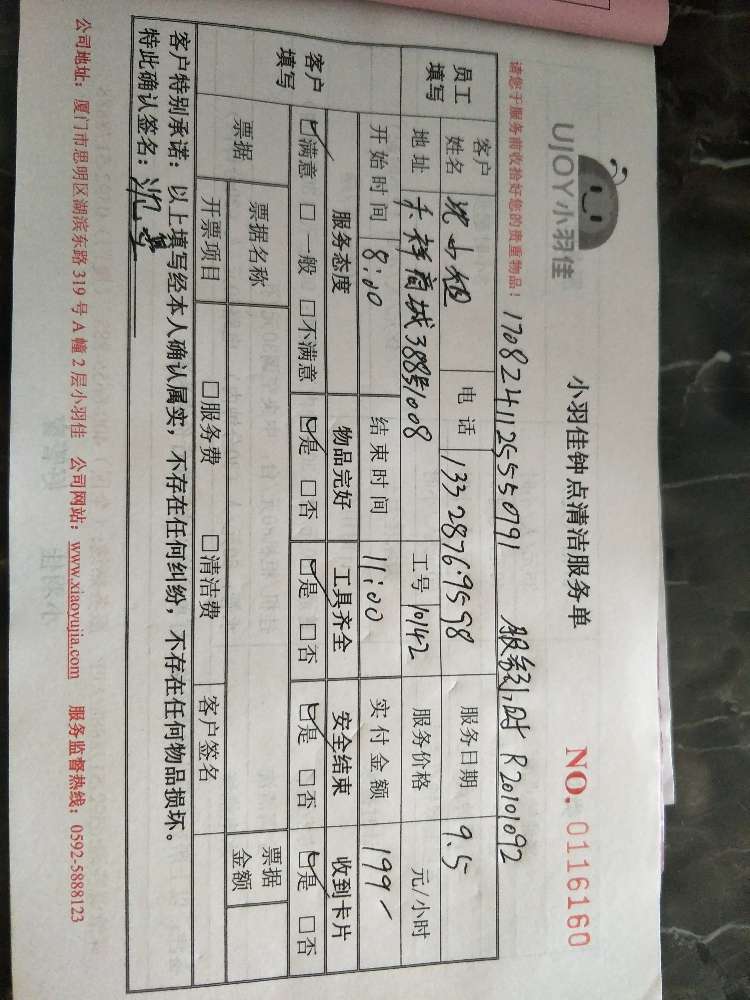 UJOY小羽佳
小羽佳钟点清洁服务单
NO. 0116160
请您于服务前收拾好您的贵重物品！
1708241125550791 R20101092
员工填写
客户姓名 电话 服务日期 9.5
地址 工号 10142 服务价格 元/小时
开始时间 8:00 结束时间 11:00 实付金额 199
客户填写
服务态度 物品完好 工具齐全 安全结束 收到卡片
☑满意 □一般 □不满意 ☑是 □否 ☑是 □否 ☑是 □否 ☑是 □否
票据 票据名称 票据金额
开票项目 □服务费 □清洁费 客户签名
客户特别承诺：以上填写经本人确认属实，不存在任何纠纷，不存在任何物品损坏。
特此确认签名：
公司地址：厦门市思明区湖滨东路319号A幢2层小羽佳 公司网站：www.xiaoyujia.com 服务监督热线：0592-5888123